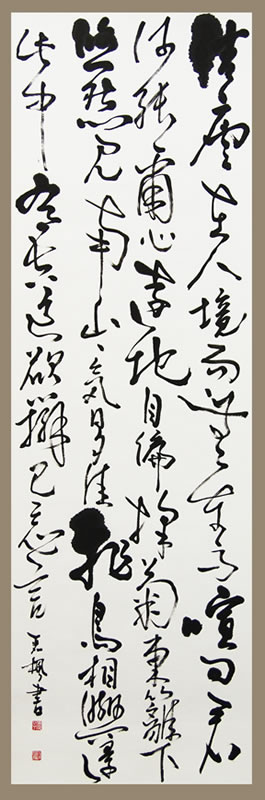 結廬在人境而無車馬喧問君
何能爾心遠地自偏採菊東籬下
悠然見南山〻氣日夕佳飛鳥相與還
此中有真意欲辨已忘言 書